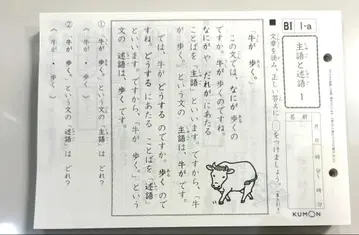 BI 1-a
主語と述語 1
名前
文章を読み、正しい答えに○をつけましょう。
牛が 歩く。
この文では、なにが 歩くの
ですか。牛が 歩くのですね。
なにがや だれが にあたる
ことばを「主語」といいます。ですから、「牛
が 歩く。」という 文の 主語は、牛が です。
では、牛が どうする のですか。歩く ので
すね。どうする にあたる ことばを「述語」
といいます。ですから、「牛が 歩く。」という
文の 述語は、歩く です。
① 牛が 歩く。という 文の 主語は どれ?
(牛が ・ 歩く)
② 牛が 歩く。という 文の 述語は どれ?
(牛が ・ 歩く)
KUMON